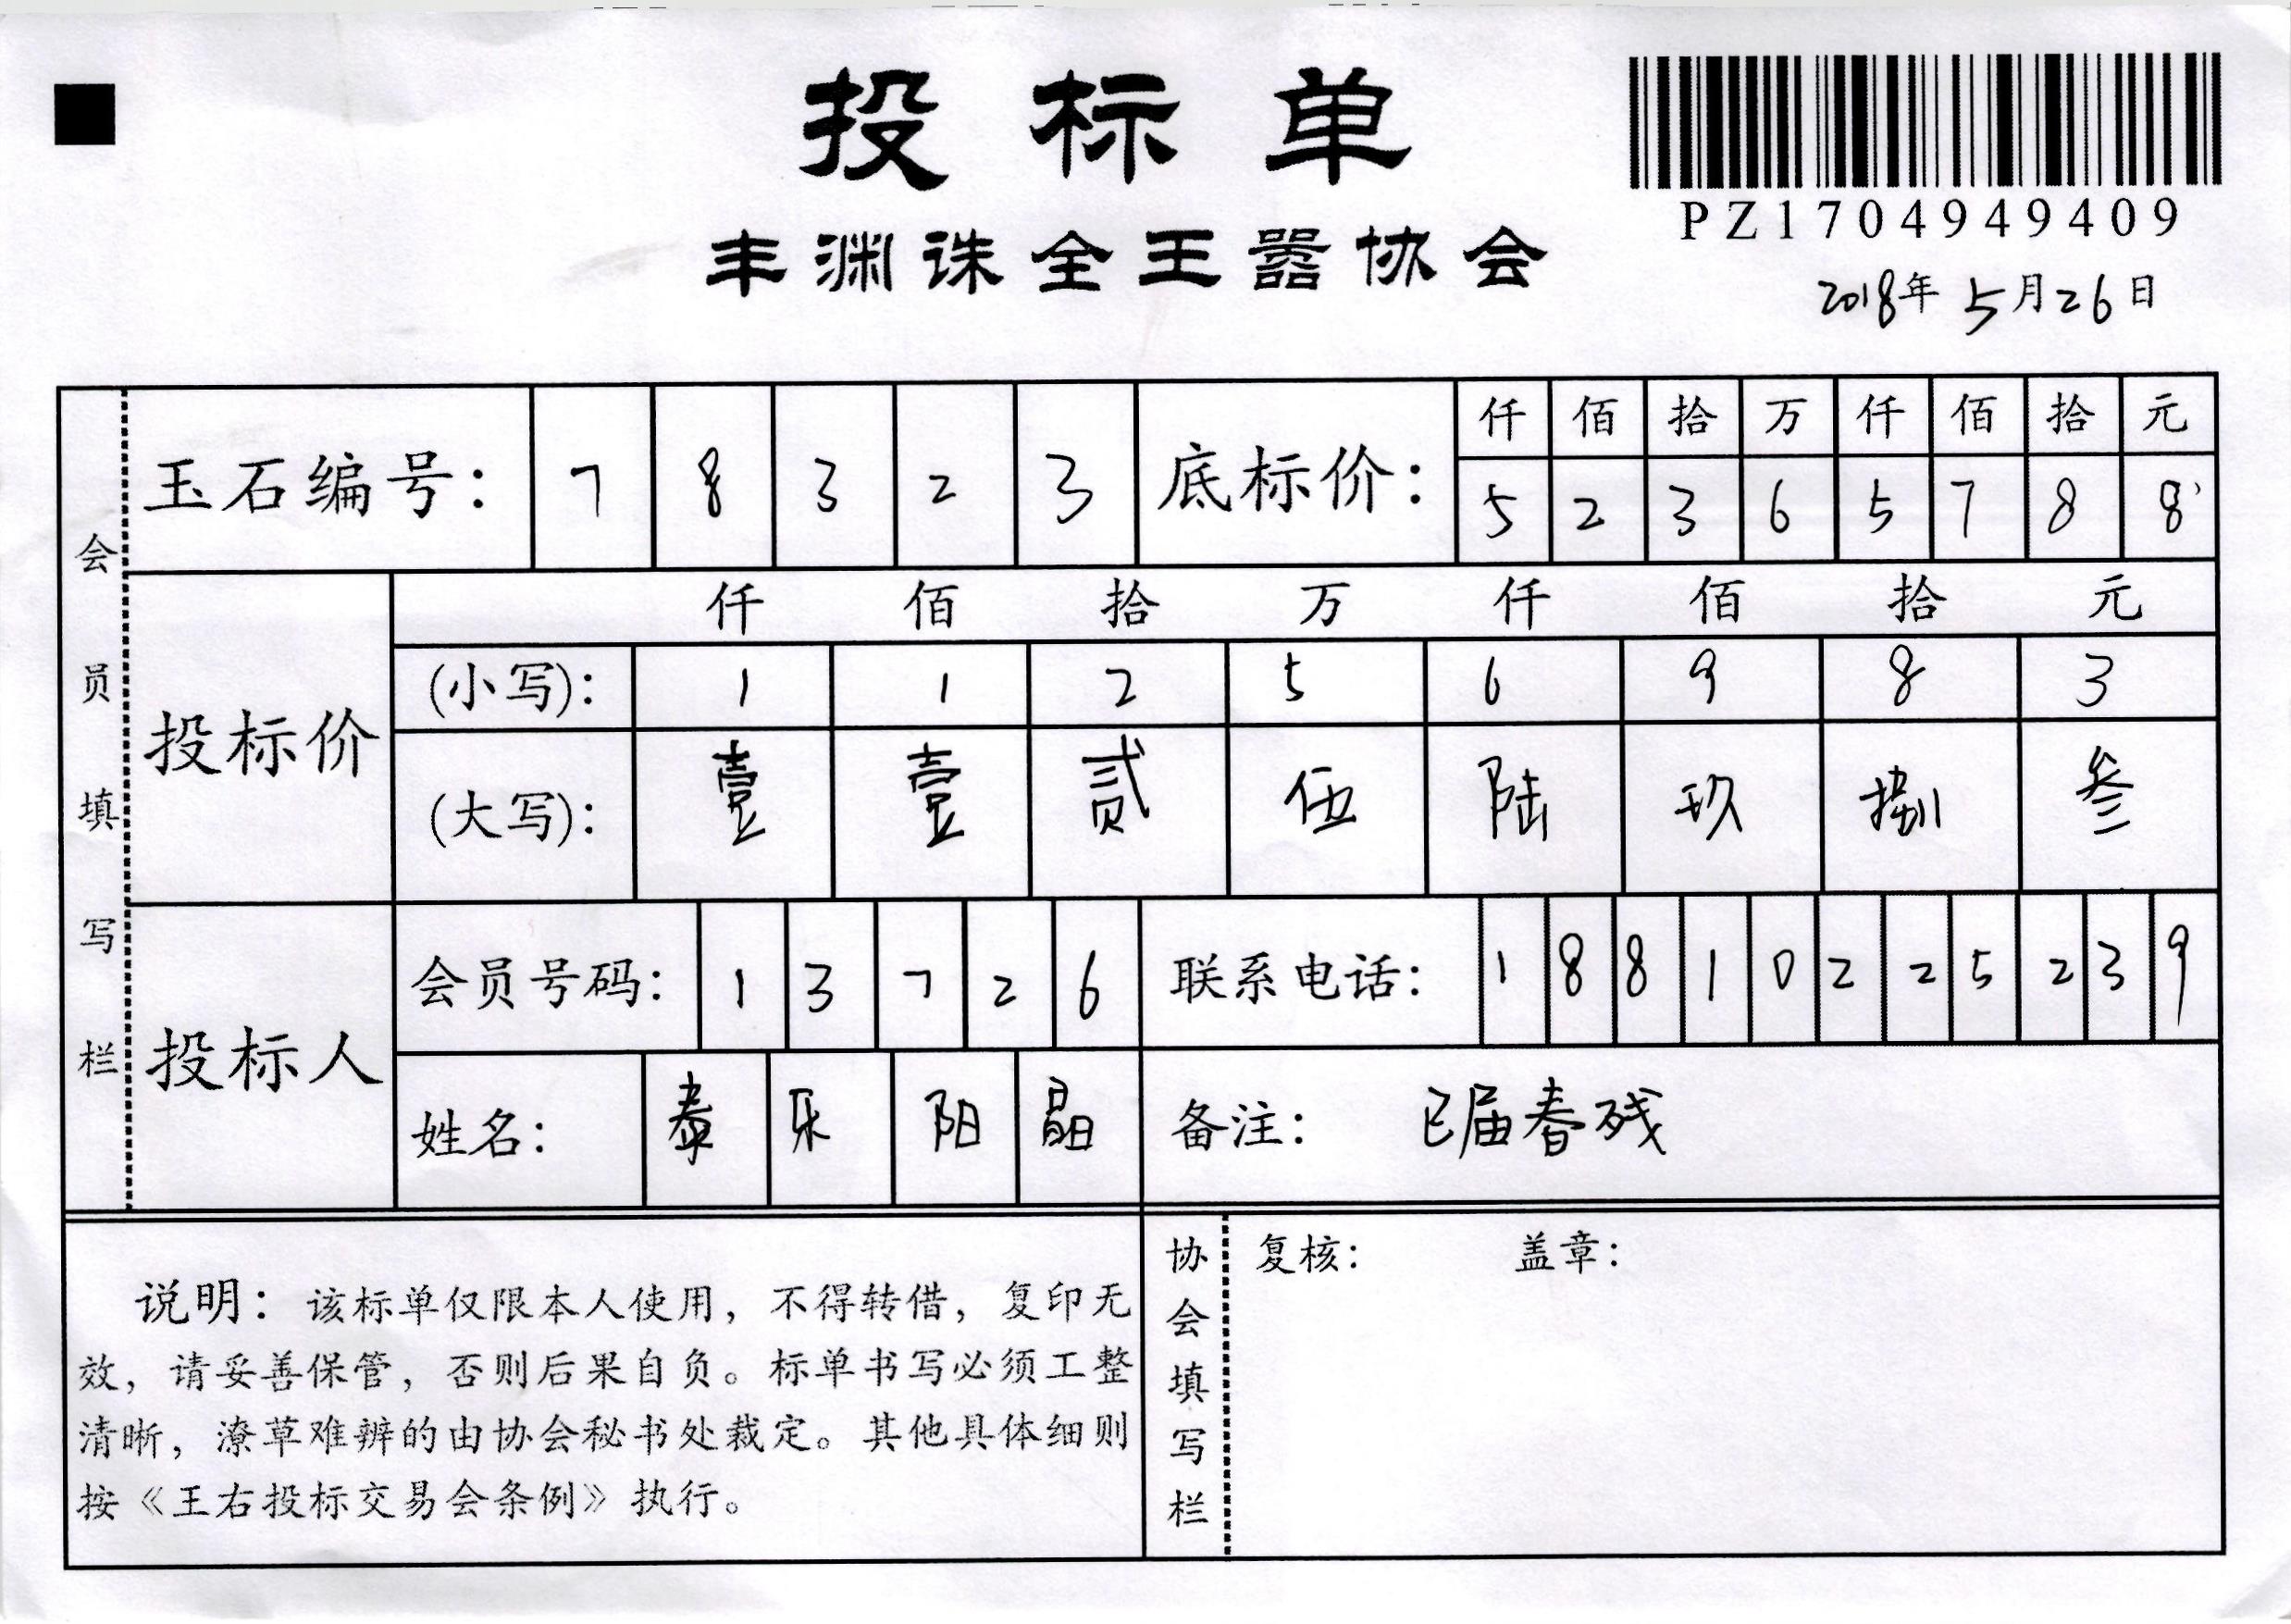 投标单
丰渊诛全王嚣协会
PZ1704949409
2018年5月26日
会员填写栏
玉石编号：78323
底标价：
仟佰拾万仟佰拾元
52365788
投标价
仟佰拾万仟佰拾元
(小写)：11256983
(大写)：壹壹贰伍陆玖捌叁
投标人
会员号码：13726
联系电话：18810225239
姓名：泰乐阳晶
备注：已届春残
说明：该标单仅限本人使用，不得转借，复印无
效，请妥善保管，否则后果自负。标单书写必须工整
清晰，潦草难辨的由协会秘书处裁定。其他具体细则
按《王右投标交易会条例》执行。
协会填写栏
复核：
盖章：